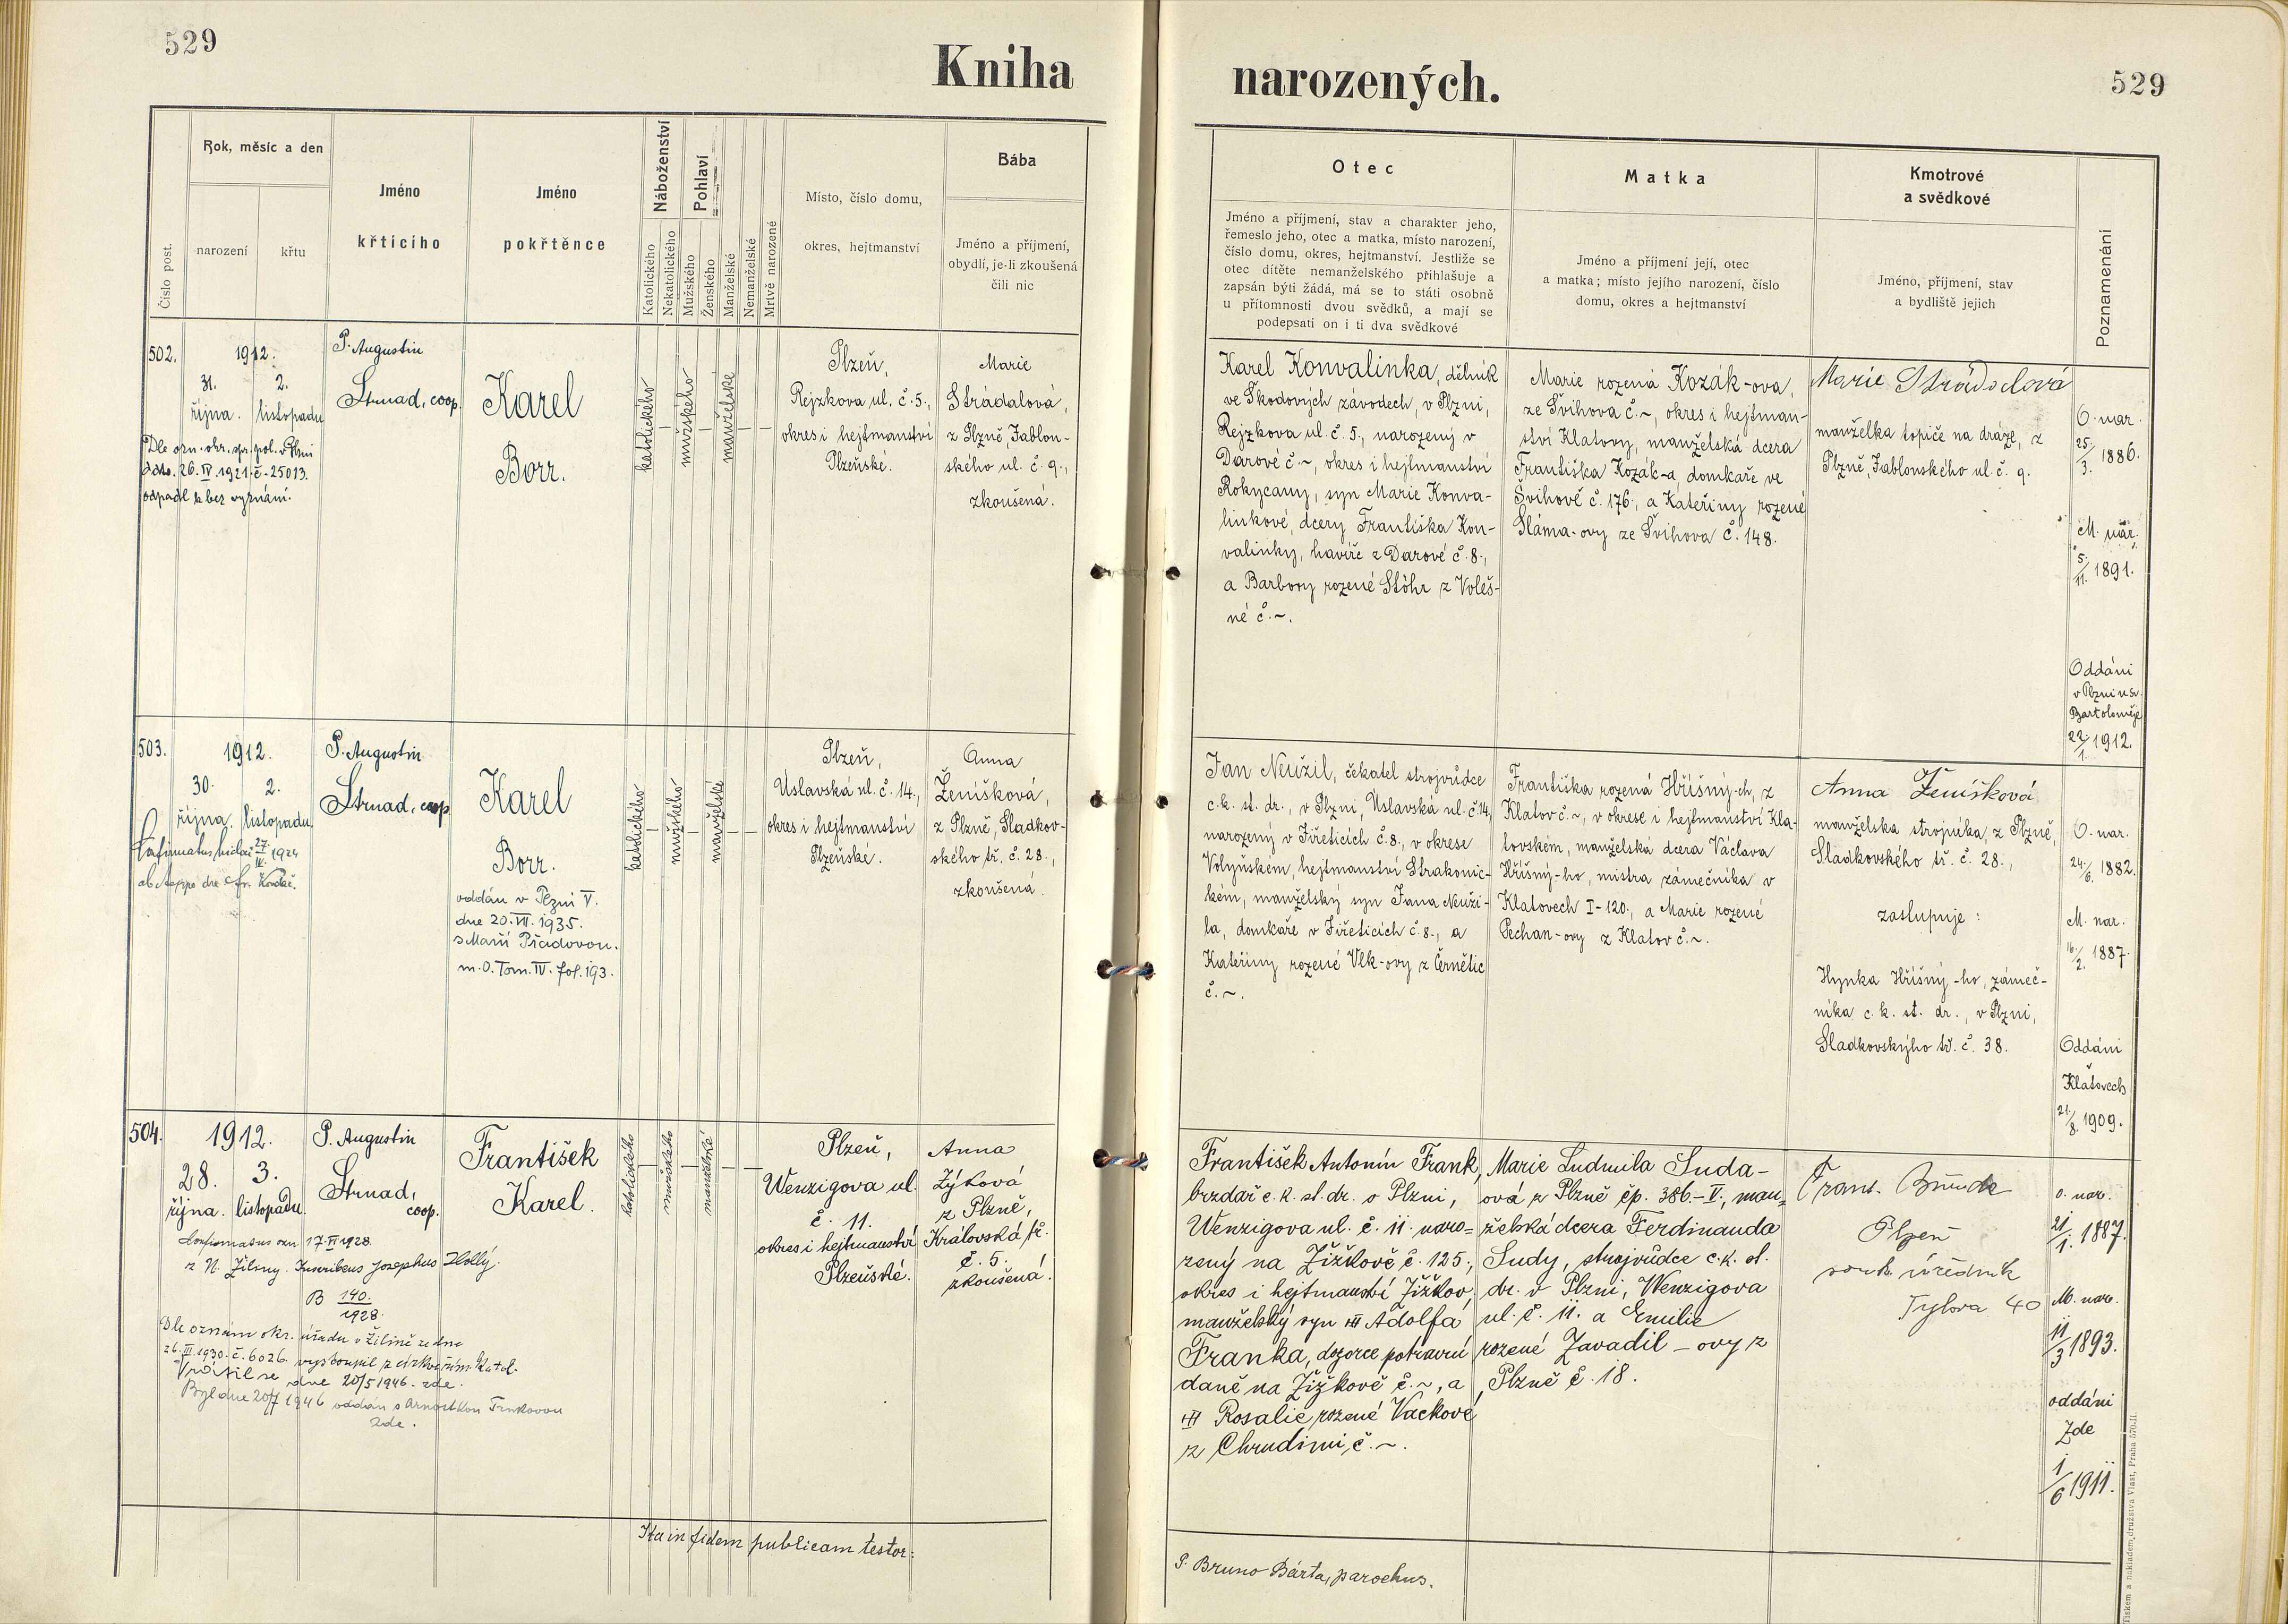 529
Kniha narozených.
529
Číslo post.
Rok, měsíc a den
narození
křtu
Jméno
křtícího
Jméno
pokřtěnce
Náboženství
Katolického
Nekatolického
Pohlaví
Mužského
Ženského
Manželské
Nemanželské
Mrtvě narozené
Místo, číslo domu,
okres, hejtmanství
Bába
Jméno a příjmení,
obydlí, je-li zkoušená
čili nic
Otec
Jméno a příjmení, stav a charakter jeho,
řemeslo jeho, otec a matka, místo narození,
číslo domu, okres, hejtmanství. Jestliže se
otec dítěte nemanželského přihlašuje a
zapsán býti žádá, má se to státi osobně
u přítomnosti dvou svědků, a mají se
podepsati on i ti dva svědkové
Matka
Jméno a příjmení její, otec
a matka; místo jejího narození, číslo
domu, okres a hejtmanství
Kmotrové
a svědkové
Jméno, příjmení, stav
a bydliště jejich
Poznamenání
502.
1912.
31.
října.
2.
listopadu
Dle ozn. okr. spr. pol. v Plzni
ddto. 26. IV 1921 č. 25013.
odpadl k bez vyznání.
P. Augustin
Strnad, coop.
Karel
Borr.
katolického
mužského
manželské
Plzeň,
Rejzkova ul. č. 5.,
okres i hejtmanství
Plzeňské.
Marie
Strádalová,
z Plzně, Jablon-
ského ul. č. 9.,
zkoušená.
Karel Konvalinka, dělník
ve Škodových závodech, v Plzni,
Rejzkova ul. č. 5., narozený v
Darové č. ~, okres i hejtmanství
Rokycany, syn Marie Konva-
linkové, dcery Františka Kon-
valinky, havíře z Darové č. 8.,
a Barbory rozené Stöhr z Voleš-
né č. ~.
Marie rozená Kozák-ova,
ze Švihova č. ~, okres i hejtman-
ství Klatovy, manželská dcera
Františka Kozák-a, domkaře ve
Švihově č. 176., a Kateřiny rozené
Sláma-ovy ze Švihova č. 148.
Marie Strádalová
manželka topiče na dráze, z
Plzně, Jablonského ul. č. 9.
O. nar.
25/3. 1886.
M. nar.
5/11. 1891.
Oddáni
v Plzni u sv.
Bartoloměje
22/1. 1912.
503.
1912.
30.
října.
2.
listopadu.
Confirmatus hic die 27/IV. 1924
P. Augustin
Strnad, coop.
Karel
Borr.
oddán v Plzni V.
dne 20. VII. 1935.
s Marií Přadovou.
m. O. Tom. IV. fol. 193.
katolického
mužského
manželské
Plzeň,
Úslavská ul. č. 14.,
okres i hejtmanství
Plzeňské.
Anna
Ženíšková,
z Plzně, Sladkov-
ského tř. č. 28.,
zkoušená.
Jan Neužil, čekatel strojvůdce
c. k. st. dr., v Plzni, Úslavská ul. č. 14,
narozený v Jiřeticích č. 8., v okrese
Volyňském, hejtmanství Strakonic-
kém, manželský syn Jana Neuži-
la, domkaře v Jiřeticích č. 8., a
Kateřiny rozené Vlk-ovy z Černětic
č. ~.
Františka rozená Hříšný-ch, z
Klatov č. ~, v okrese i hejtmanství Kla-
tovském, manželská dcera Václava
Hříšný-ho, mistra zámečníka v
Klatovech I-120., a Marie rozené
Pechan-ovy z Klatov č. ~.
Anna Ženíšková
manželka strojníka, z Plzně,
Sladkovského tř. č. 28.,
zastupuje:
Hynka Hříšný-ho, zámeč-
níka c. k. st. dr., v Plzni,
Sladkovského tř. č. 38.
O. nar.
24./6. 1882.
M. nar.
16./2. 1887.
Oddáni
Klatovech
21./8. 1909.
504.
1912.
28.
října.
3.
listopadu.
P. Augustin
Strnad,
coop.
František
Karel.
Confirmatus 17. VI 1928
z N. Žiliny. Inscribens Josephus Hollý.
B 140./1928.
Dle oznám okr. úřadu v Žilině ze dne
26. III. 1930. č. 6026. vystoupil z církve řím. katol.
Vrátil se dne 20/5 1946. zde.
Byl dne 20/7 1946 oddán s Arnoštkou Trnkovou
zde.
katolického
mužského
manželské
Plzeň,
Wenzigova ul.
č. 11.
okres i hejtmanství
Plzeňské.
Anna
Zýková
z Plzně,
Královská tř.
č. 5.
zkoušená.
František Antonín Frank,
brzdař c. k. st. dr. v Plzni,
Wenzigova ul. č. 11. naro=
zený na Žižkově č. 125.,
okres i hejtmanství Žižkov,
manželský syn Adolfa
Franka, dozorce potravní
daně na Žižkově č. ~, a
Rosalie rozené Vackové
z Chrudimi, č. ~.
Marie Ludmila Suda-
ová z Plzně čp. 386.-V., man=
želská dcera Ferdinanda
Sudy, strojvůdce c. k. st.
dr. v Plzni, Wenzigova
ul. č. 11. a Emilie
rozené Zavadil-ovy z
Plzně č. 18.
Frant.
Plzeň
soukr. úředník
Tylova 40
o. nar.
21/1. 1887.
M. nar.
11/3 1893.
oddáni
Zde
1/6 1911.
Ita in fidem publicam testor:
P. Bruno Bárta, parochus.
Tiskem a nákladem družstva Vlast, Praha 570-II.